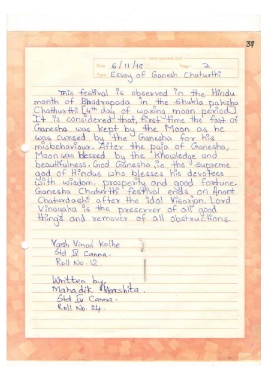 38
Date 6/11/18 Page 2
Topic Essay of Ganesh Chaturthi
This festival is observed in the Hindu
month of Bhadrapada in the shukla paksha
Chathurthi (4th day of waxing moon period).
It is considered that, first time the fast of
Ganesha was kept by the Moon as he
was cursed by the Ganesha for his
misbehaviour. After the puja of Ganesha,
Moon was blessed by the Knowledge and
beautifulness. God Ganesha is the supreme
god of Hindus who blesses his devotees
with wisdom, prosperity and good fortune.
Ganesha Chaturthi festival ends on Anant
Chaturdashi after the idol Visarjan. Lord
Vinayaka is the preserver of all good
things and remover of all obstructions.
Yash Vinod Kolhe
Std IV Canna.
Roll No. 12
Written by,
Mahadik Harshita.
Std IV Canna.
Roll No. 24.